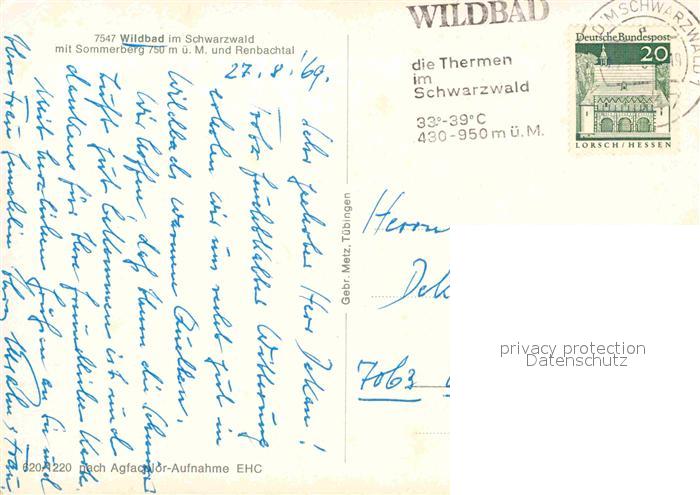 7547 Wildbad im Schwarzwald
mit Sommerberg 750 m ü. M. und Renbachtal
27.8.'69.
Sehr geehrter Herr Dekan!
Trotz Witterung
erholen wir uns recht gut in
Wildbads warmen Quellen.
Wir hoffen, daß Ihnen die
Luft gut bekommen ist und
danken für Ihre freundliche
Mit herzlichen Grüßen an Sie und
Ihre Frau Gemahlin Ihr u. Frau
620/1220 nach Agfacolor-Aufnahme EHC
Gebr. Metz, Tübingen
WILDBAD
die Thermen
im
Schwarzwald
33°-39°C
430-950 m ü. M.
IM SCHWARZWALD
Deutsche Bundespost
20
LORSCH/HESSEN
Herrn
Dek
7063
privacy protection
Datenschutz